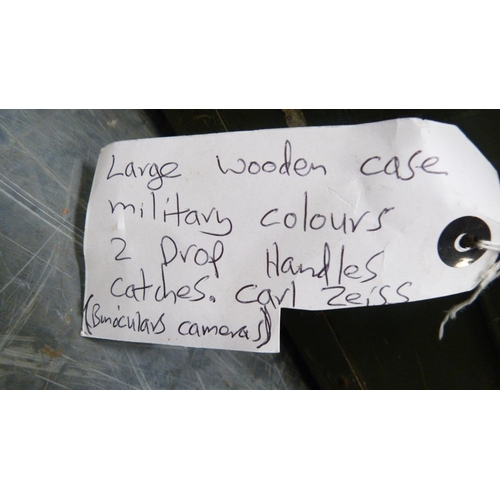 Large wooden case
military colours
2 Drop Handles
catches. Carl Zeiss
(Binoculars cameras)